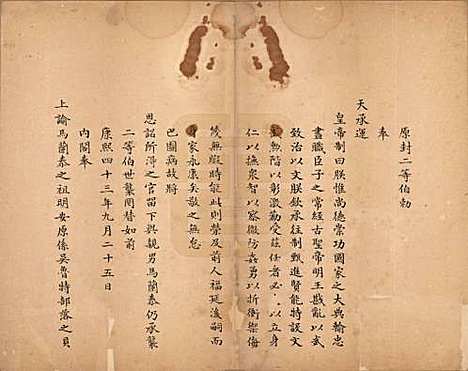 原封二等伯勅
奉
天承運
皇帝制曰朕惟尚德崇功國家之大典輸忠
盡職臣子之常經古聖帝明王戡亂以武
致治以文朕欽承往制甄進賢能特設文
武勲階以彰激勸受茲任者必以立身
仁以撫眾智以察微防姦勇以折衝禦侮
後無暇時能此則榮及前人福延後嗣而
身家永康矣敬之無怠
巴圖病故將
恩詔所得之官留下與親男馬蘭泰仍承襲
二等伯世襲罔替如前
康熙四十三年九月二十五日
內閣奉
上諭馬蘭泰之祖明安原係吳魯特部落之貝